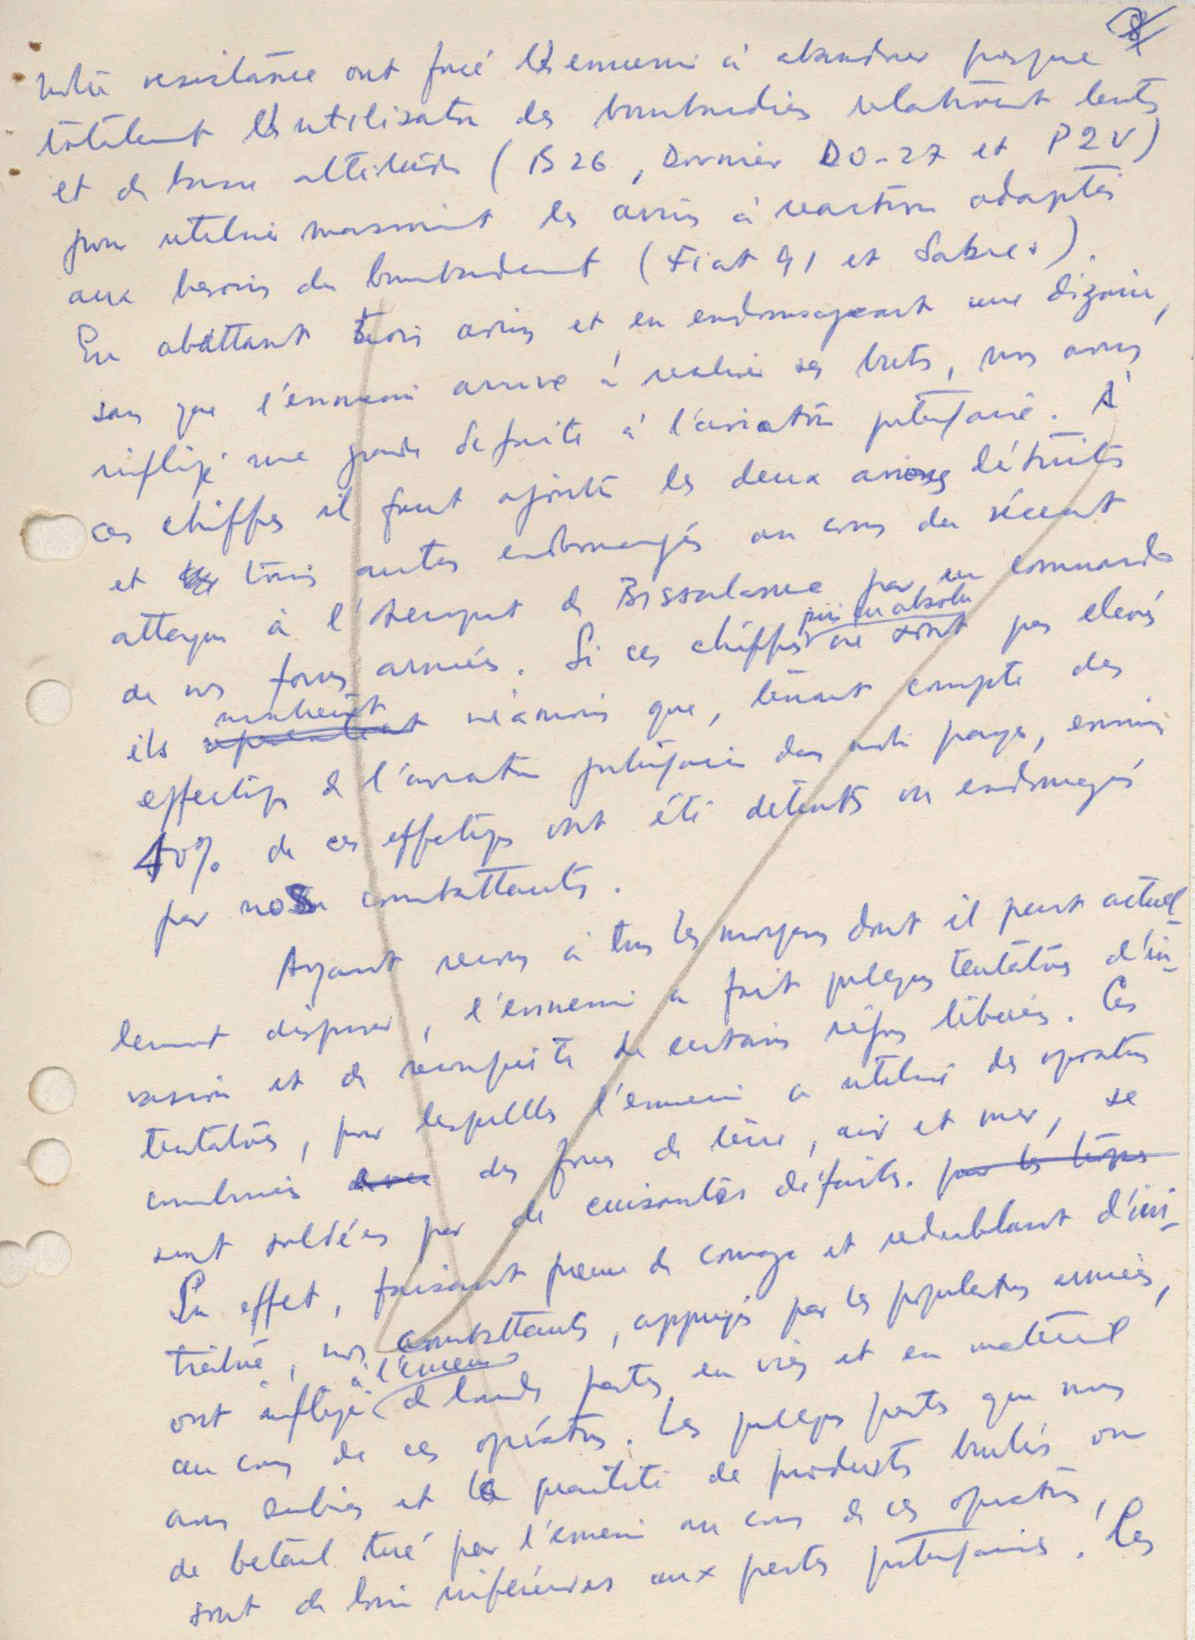 8
notre resistance ont forcé l'ennemi à abandonner presque
totalement l'utilisation des bombardiers relativement lents
et de basse altitude (B26, Dornier DO-27 et P2V)
pour utiliser massivement les avions à reaction adaptés
aux besoins du bombardement (Fiat 91 et Sabres).
En abattant trois avions et en endomageant une dizaine,
sans que l'ennemi arrive à realiser ses buts, nous avons
infligé une grande defaite à l'aviation portugaise. A
ces chiffres il faut ajouter les deux avions détruits
et trois autres endomagés au cours du récent
attaque à l'aeroport de Bissalanca par un commando
de nos forces armées. Si ces chiffres pris en absolu ne sont pas elevés
ils néamoins que, tenant compte des
effectifs de l'aviation portugaise dans notre pays, environ
40% de ces effectifs ont été detruits ou endomagés
par nos combattants.
Ayant recours à tous les moyens dont il peut actuel-
lement disposer, l'ennemi a fait quelques tentatives d'in-
vasion et de reconquête de certaines régions libérées. Ces
tentatives, pour lesquelles l'ennemi a utilisé des operations
combinées des forces de terre, air et mer, se
sont soldées par de cuisantes défaites.
En effet, faisant preuve de courage et redoublant d'ini-
tiative, nos combattants, appuyés par les populations armées,
ont infligé à l'ennemi de lourdes pertes en vies et en matériel
au cours de ces opérations. Les quelques pertes que nous
avons subies et la quantité de produits brulés ou
de betail tué par l'ennemi au cours de ces operations,
sont de loin inférieures aux pertes portugaises. Les